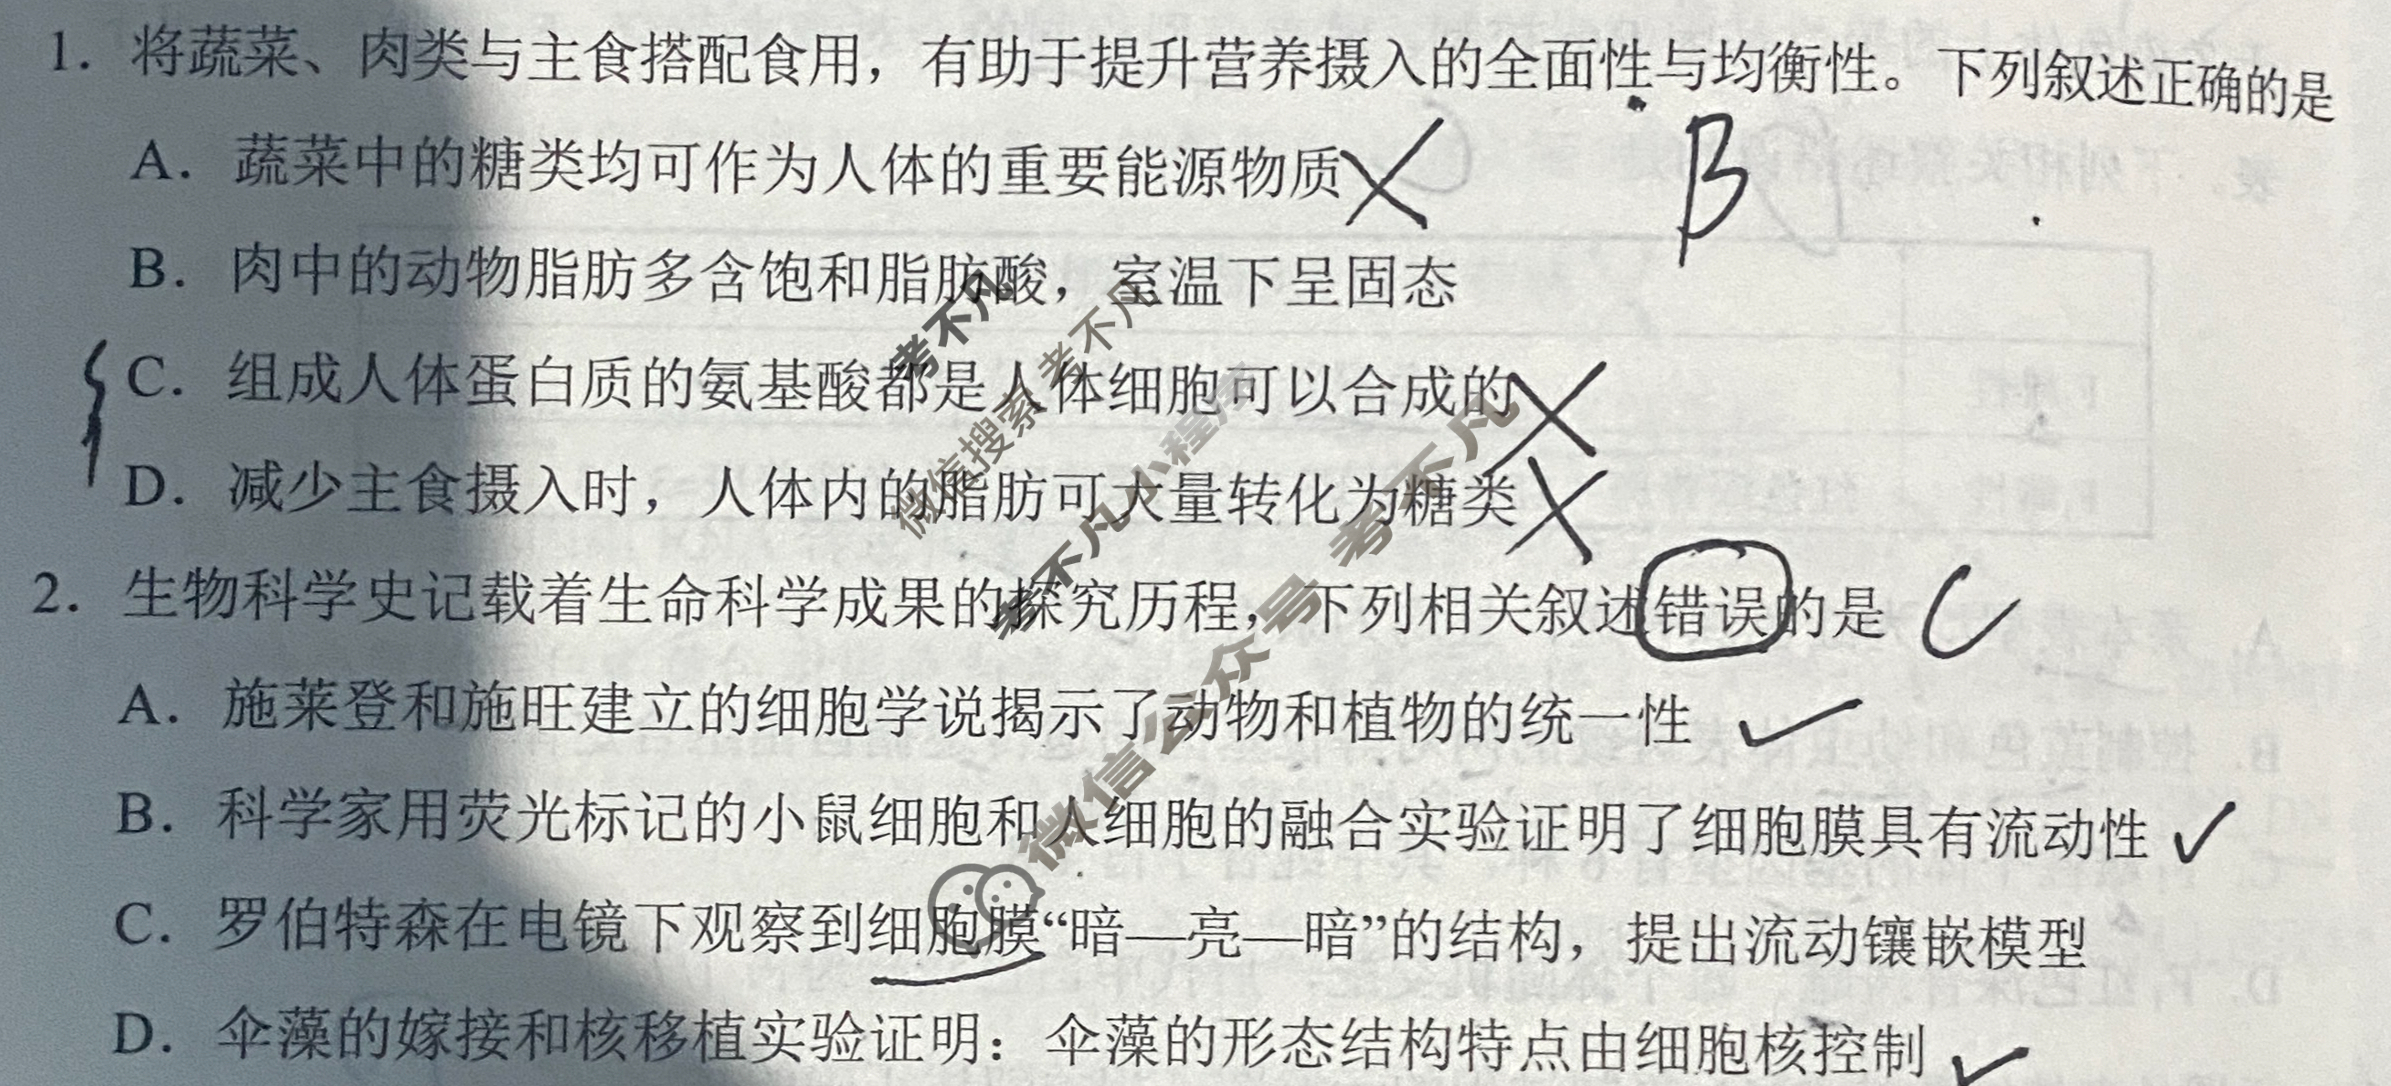 1. 将蔬菜、肉类与主食搭配食用，有助于提升营养摄入的全面性与均衡性。下列叙述正确的是
B
A. 蔬菜中的糖类均可作为人体的重要能源物质
B. 肉中的动物脂肪多含饱和脂肪酸，室温下呈固态
C. 组成人体蛋白质的氨基酸都是人体细胞可以合成的
D. 减少主食摄入时，人体内的脂肪可大量转化为糖类
2. 生物科学史记载着生命科学成果的探究历程，下列相关叙述错误的是 C
A. 施莱登和施旺建立的细胞学说揭示了动物和植物的统一性
B. 科学家用荧光标记的小鼠细胞和人细胞的融合实验证明了细胞膜具有流动性
C. 罗伯特森在电镜下观察到细胞膜“暗—亮—暗”的结构，提出流动镶嵌模型
D. 伞藻的嫁接和核移植实验证明：伞藻的形态结构特点由细胞核控制
考不凡
微信搜索 考不凡
考不凡小程序
微信公众号 考不凡